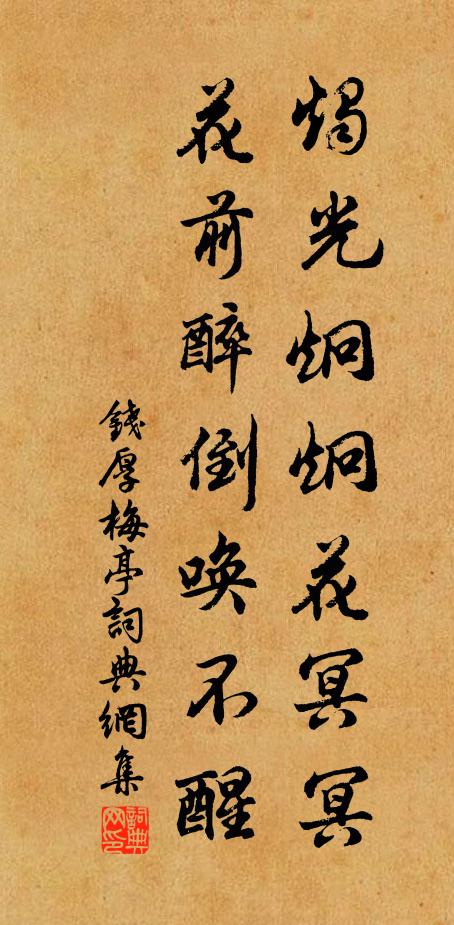 燭光炯炯花冥冥
花前醉倒唤不醒
錢厚梅亭詞典網集
詞典网印